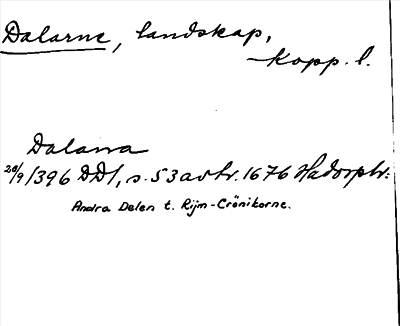 Dalarne, landskap,
Kopp. l.
Dalarna
20/9 1396 DD1, s. 53 avtr. 1676 Hadorph:
Andra Delen t. Rijm-Crönikorne.